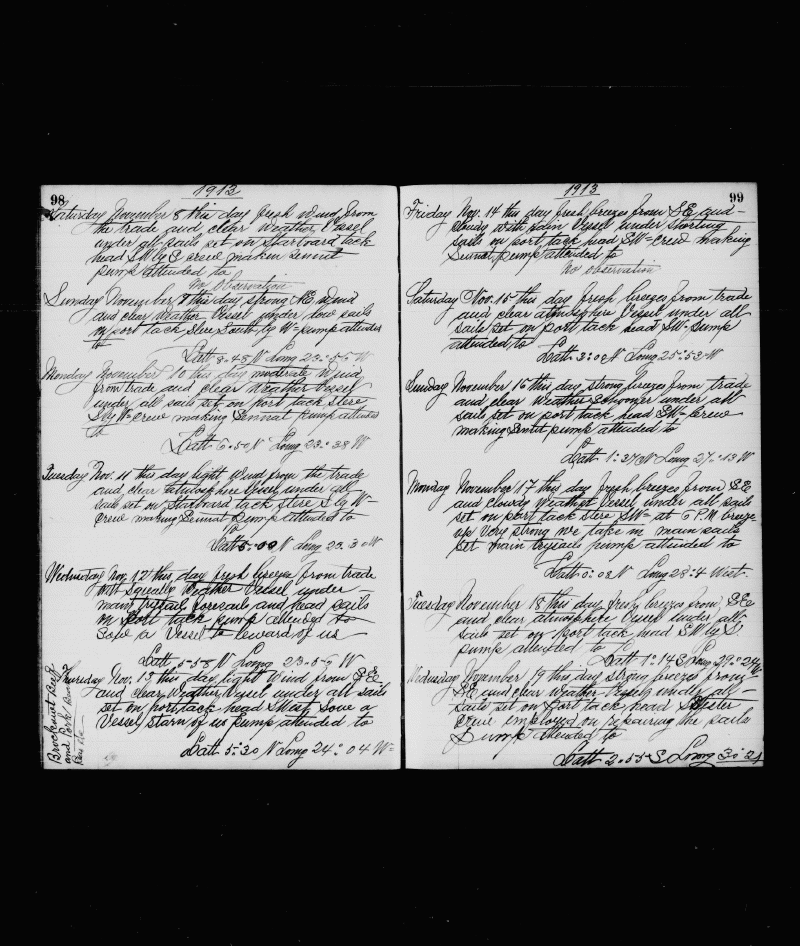 98
1913
Saturday November 8 this day fresh wind from
the trade and clear weather Vessel
under all sails set on Starboard tack
head SW by S crew makin sennit
pump attended to
No Observation
Sunday November 9 this day strong NE wind
and clear weather Vessel under low sails
on port tack stere South by W- pump attended
to
Latt 8-48 N Long 23-56 W
Monday November 10 this day moderate wind
from trade and clear weather Vessel
under all sails set on port tack stere
S by W- Crew making Sennit pump attended
to
Latt 6-50 N Long 23-38 W
Tuesday Nov. 11 this day light wind from the trade
and clear atmosphere Vessel under all
sails set on Starboard tack stere S by W-
Crew making Sennit Pump attended to
Latt 6-00 N Long 23-30 W
Wednesday Nov 12 this day fresh breeze from trade
with Squally Weather Vessel under
main trysail foresails and head sails
on Port tack pump attended to
a Vessel to leward of us
Latt 5-58 N Long 23-59 W
Thursday Nov. 13 this day light Wind from SSE
and clear Weather Vessel under all sails
set on port tack head SWest a
Vessel starn of us pump attended to
Latt 5-30 N Long 24-04 W
and Pork
99
1913
Friday Nov. 14 this day fresh breezes from SE and
cloudy with rain Vessel under
sails on port tack head SW- Crew making
Sennit pump attended to
No observation
Saturday Nov. 15 this day fresh breezes from trade
and clear atmosphere Vessel under all
sails set on port tack head SW- pump
attended to
Latt 3-08 N Long 25-53 W
Sunday November 16 this day strong breezes from trade
and clear weather Schooner under all
sails set on port tack head SW- Crew
making Sennit pump attended to
Latt 1-37 N Long 27-13 W
Monday November 17 this day fresh breezes from SE
and cloudy Weather Vessel under all sails
set on port tack stere SW- at 6 P.M breeze
up Very strong we take in main sails
set main trysails pump attended to
Latt 0-08 N Long 28-4 West-
Tuesday November 18 this day fresh breezes from SSE
and clear atmosphere Vessel under all
sails set on Port tack head SW by S
pump attended to
Latt 1-14 S Long 29-24 W
Wednesday November 19 this day strong breezes from
SE and clear Weather Vessel under all
sails set on Port tack head
Crew employed on repairing the sails
Pump attended to
Latt 2-55 S Long 30-21